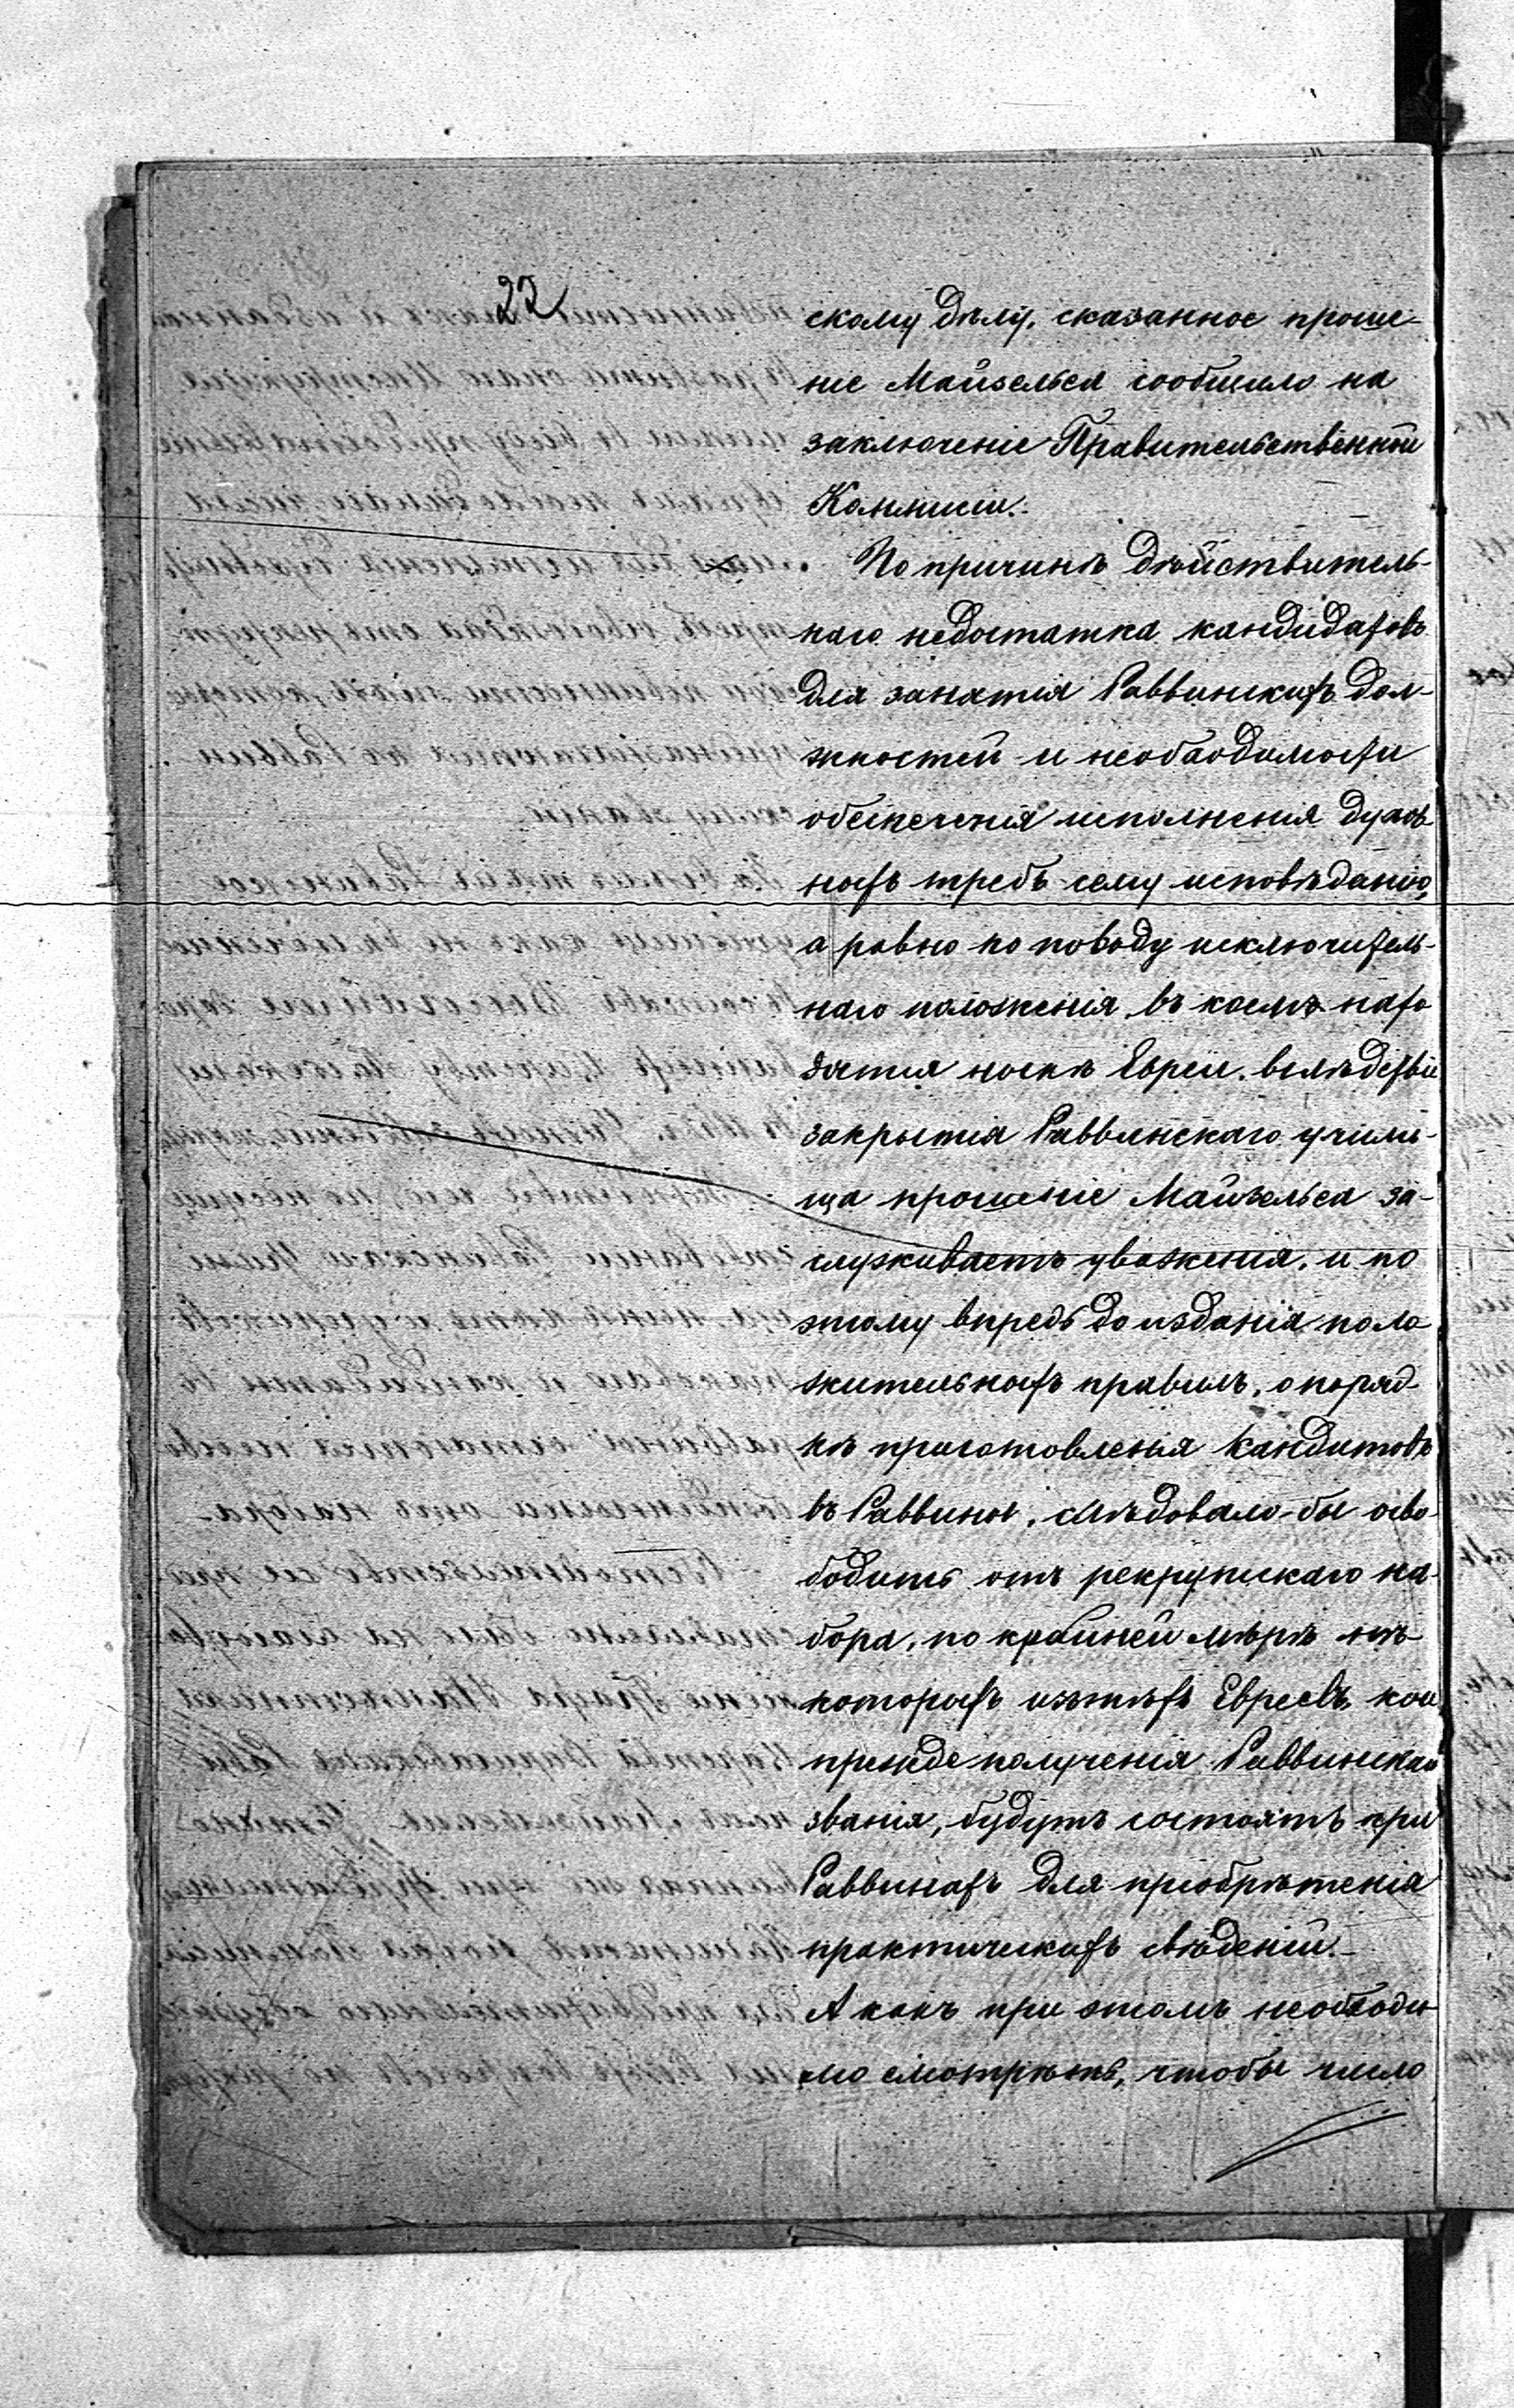 22
скому дѣлу, сказанное проше-
ніе Майзельса сообщило на
заключеніе Правительственной
Коммисіи.
По причинѣ дѣйствитель-
наго недостатка кандидатовъ
для занятія Раввинскихъ дол-
жностей и необходимости
обезпеченія исполненія духов-
ныхъ требъ сему исповѣданію,
а равно по поводу исключитель-
наго положенія, въ коемъ нахо
дятся нынѣ Евреи, вслѣдствіе
закрытія Раввинскаго учили-
ща прошеніе Майзельса за-
служиваетъ уваженія, и по
этому впредь до изданія поло
жительныхъ правилъ, о поряд
кѣ приготовленія кандитовъ
въ Раввины, слѣдовало-бы осво-
бодить отъ рекрутскаго на-
бора, по крайней мѣрѣ нѣ-
которыхъ изъ тѣхъ Евреевъ, кои
прежде полученія Раввинскаго
званія, будутъ состоять при
Раввинахъ для пріобрѣтенія
практическихъ свѣденій.-
А какъ при этомъ необходи
мо смотрѣть, чтобы число